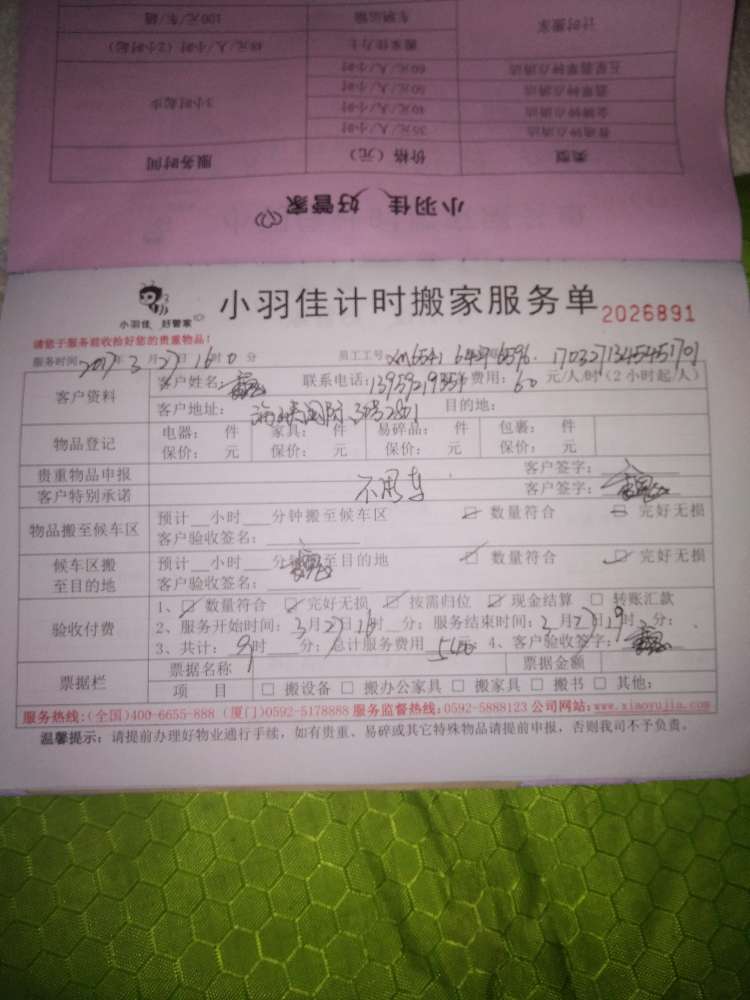 计时搬家 车辆运输 100元/车/趟
搬家佳力士 元/人/小时(2小时起)
五星翡翠钟点清洁 60元/人/小时
翡翠钟点清洁 50元/人/小时
金牌钟点清洁 40元/人/小时 3小时起步
普通钟点清洁 35元/人/小时
类型 价格(元) 服务时间
小羽佳 好管家
小羽佳 好管家
小羽佳计时搬家服务单 2026891
请您于服务前收拾好您的贵重物品!
服务时间:2017年3月27日16时0分 员工工号:xm6541 6496596. 1703271345451701
客户资料 客户姓名: 联系电话: 费用:60元/人/时(2小时起/人)
客户地址: 国际3号2801 目的地:
物品登记 电器: 件 家具: 件 易碎品: 件 包裹: 件
保价: 元 保价: 元 保价: 元 保价: 元
贵重物品申报 客户签字:
客户特别承诺 不用车 客户签字:
物品搬至候车区 预计__小时___分钟搬至候车区 数量符合 完好无损
客户验收签名:
候车区搬至目的地 预计__小时___分钟搬至目的地 数量符合 完好无损
客户验收签名:
验收付费 1、 数量符合 完好无损 按需归位 现金结算 转账汇款
2、服务开始时间:3月27日16时__分;服务结束时间:3月27日19时__分;
3、共计:9时___分;总计服务费用540元;4、客户验收签字:
票据栏 票据名称 票据金额
项 目 搬设备 搬办公家具 搬家具 搬书 其他:
服务热线:(全国)400-6655-888 (厦门)0592-5178888 服务监督热线:0592-5888123 公司网站:www.xiaoyujia.com
温馨提示:请提前办理好物业通行手续,如有贵重、易碎或其它特殊物品请提前申报,否则我司不予负责。